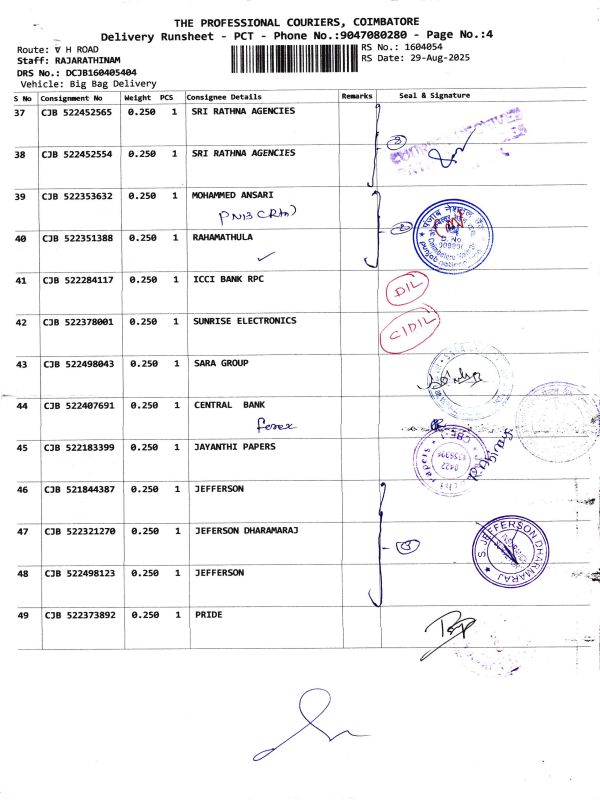 THE PROFESSIONAL COURIERS, COIMBATORE
Delivery Runsheet - PCT - Phone No.:9047080280 - Page No.:4
Route: V H ROAD
RS No.: 1604054
Staff: RAJARATHINAM
RS Date: 29-Aug-2025
DRS No.: DCJB160405404
Vehicle: Big Bag Delivery
S No Consignment No Weight PCS Consignee Details Remarks Seal & Signature
37 CJB 522452565 0.250 1 SRI RATHNA AGENCIES
38 CJB 522452554 0.250 1 SRI RATHNA AGENCIES
39 CJB 522353632 0.250 1 MOHAMMED ANSARI
PNB
40 CJB 522351388 0.250 1 RAHAMATHULA
41 CJB 522284117 0.250 1 ICCI BANK RPC
DIL
42 CJB 522378001 0.250 1 SUNRISE ELECTRONICS
CIDIL
43 CJB 522498043 0.250 1 SARA GROUP
44 CJB 522407691 0.250 1 CENTRAL BANK
forex
45 CJB 522183399 0.250 1 JAYANTHI PAPERS
46 CJB 521844387 0.250 1 JEFFERSON
47 CJB 522321270 0.250 1 JEFERSON DHARAMARAJ
3
S. JEFFERSON DHARMARAJ
48 CJB 522498123 0.250 1 JEFFERSON
49 CJB 522373892 0.250 1 PRIDE